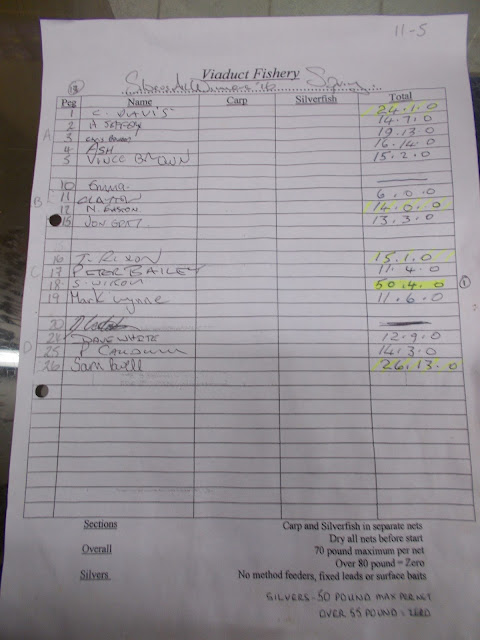 11-5
Viaduct Fishery
13 Spring
Peg Name Carp Silverfish Total
A
1 C. DAVIS 24.1.0
2 14.7.0
3 19.13.0
4 ASH 16.14.0
5 VINCE BROWN 15.2.0
B
10 Emma —
11 CLAYTON 6.0.0
12 14.0.0
15 13.3.0
C
16 T. RIXON 15.1.0
17 PETER BAILEY 11.4.0
18 50.4.0 1
19 Mark Wynne 11.6.0
D
20 —
24 DAVE WHITE 12.9.0
25 14.3.0
26 Sam Powell 26.13.0
Sections Carp and Silverfish in separate nets
Dry all nets before start
Overall 70 pound maximum per net
Over 80 pound = Zero
Silvers No method feeders, fixed leads or surface baits
SILVERS - 50 POUND MAX PER NET
OVER 55 POUND = ZERO